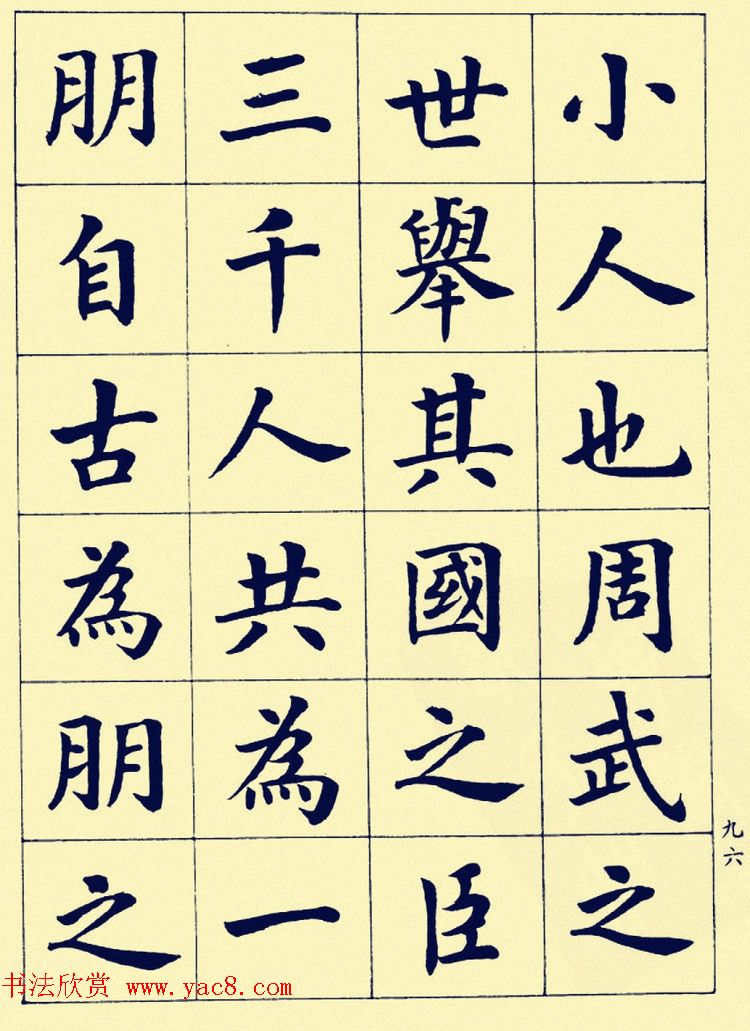 小人也周武之
世舉其國之臣
三千人共為一
朋自古為朋之
九六
书法欣赏 www.yac8.com